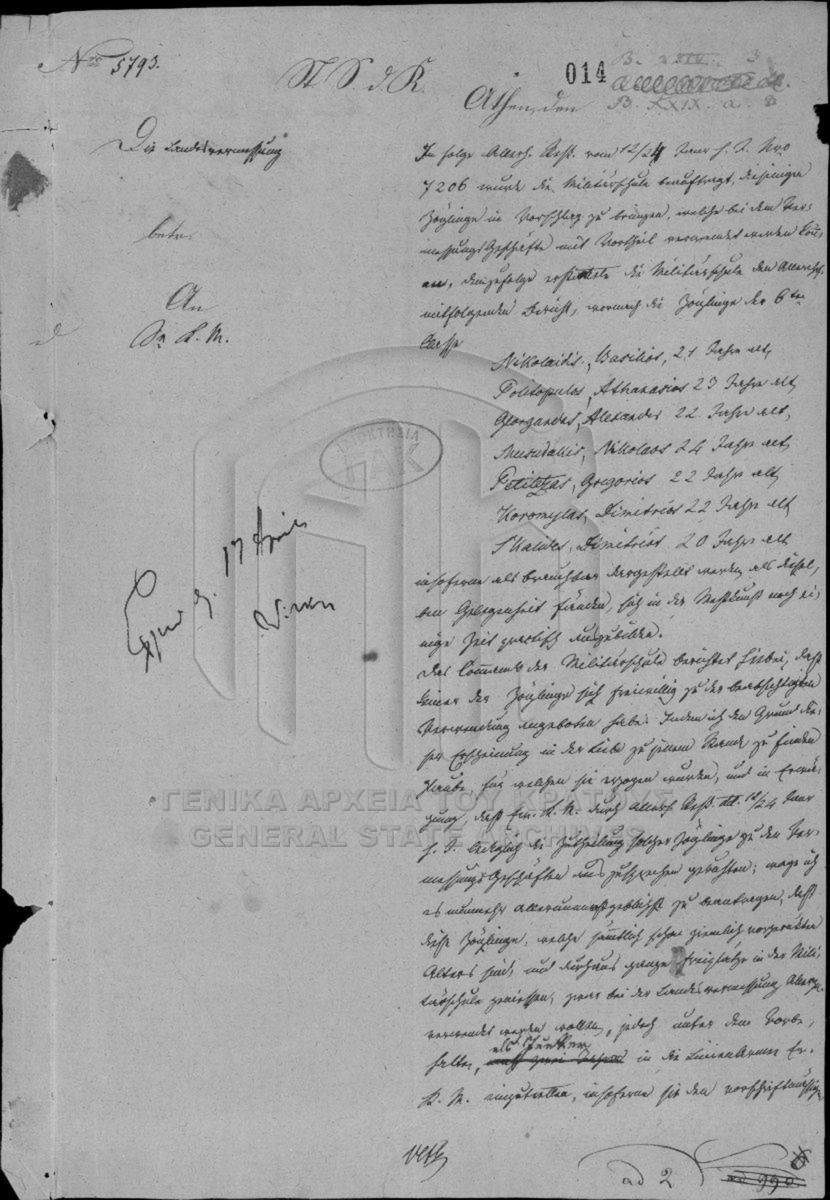 Nro 5793.
St. S. d. K.
014
B. XXIX. a. 3
Athen, den
Die Landesvermessung
betr.
An
Se. K. M.
In folge Allerh. Resc. vom 12/24 Januar h. J. Nro
7206 wurde die Militärschule beauftragt, diejenigen
Zöglinge in Vorschlag zu bringen, welche bei dem Ver-
messungs Geschäfte mit Vortheil verwendet werden könn-
en, demzufolge erstattete die Militärschule den Allerh.
mitfolgenden Bericht, wornach die Zöglinge der 6ten
Classe
Nikolaidis, Basilios, 21 Jahre alt,
Politopulos, Athanasios 23 Jahre alt
Georgandas, Alexander 22 Jahre alt,
Nikolaos 24 Jahre alt
Petitzas, Gregorios 22 Jahre alt
Koromylas, Dimitrios 22 Jahre alt
Skalides, Dimitrios 20 Jahre alt
insoferne als brauchbar dargestellt werden, als diesel-
ben Gelegenheit fänden, sich in der Meßkunst noch ei-
nige Zeit practisch auszubilden.
Das Commando der Militärschule berichtet hiebei, daß
keiner der Zöglinge sich freiwillig zu der beabsichtigten
Verwendung angeboten habe. Indem ich den Grund die-
ser Erscheinung in der Liebe zu jenem Stande zu finden
glaube, für welchen sie erzogen wurden, und in Erwä-
gung, daß Eu. K. M. durch Allerh. Resc. dd. 12/24 Januar
h. J. bezüglich die Zutheilung solcher Zöglinge zu den Ver-
messungs Geschäften auszusprechen geruhten; wage ich
es nunmehr allerunterthänigst zu beantragen, daß
diese Zöglinge, welche sämmtlich schon ziemlich vorgerückten
Alters sind, und durchaus ganze Freiplätze in der Mili-
tärschule geniessen, zwar bei der Landesvermessung
verwendet werden wollten, jedoch unter dem Vorbe-
halte, als Junker in die Linien Armee Eu.
K. M. einzutretten, insoferne sie den vorschriftmäßigen
Exped. d. 17 April
ad 2
ΓΕΝΙΚΑ ΑΡΧΕΙΑ ΤΟΥ ΚΡΑΤΟΥΣ
GENERAL STATE ARCHIVES